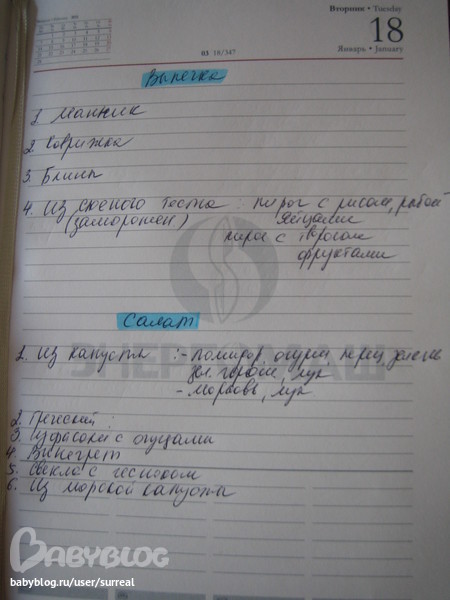 Вторник • Tuesday
18
03 18/347
Январь • January
Выпечка
1. Манник
2. Коврижка
3. Блины
4. Из слоеного теста: пирог с рисом, рыбой
(заморожен) яйцами
пирог с творогом
фруктами
Салат
1. Из капусты: - помидор, огурец, перец, зелень
горошек, лук
- морковь, лук
2. Греческий:
3. Из фасоли с огурцами
4. Винегрет
5. Свекла с чесноком
6. Из морской капусты
ЭНЕРГОМАШ
BABYBLOG
babyblog.ru/user/surreal